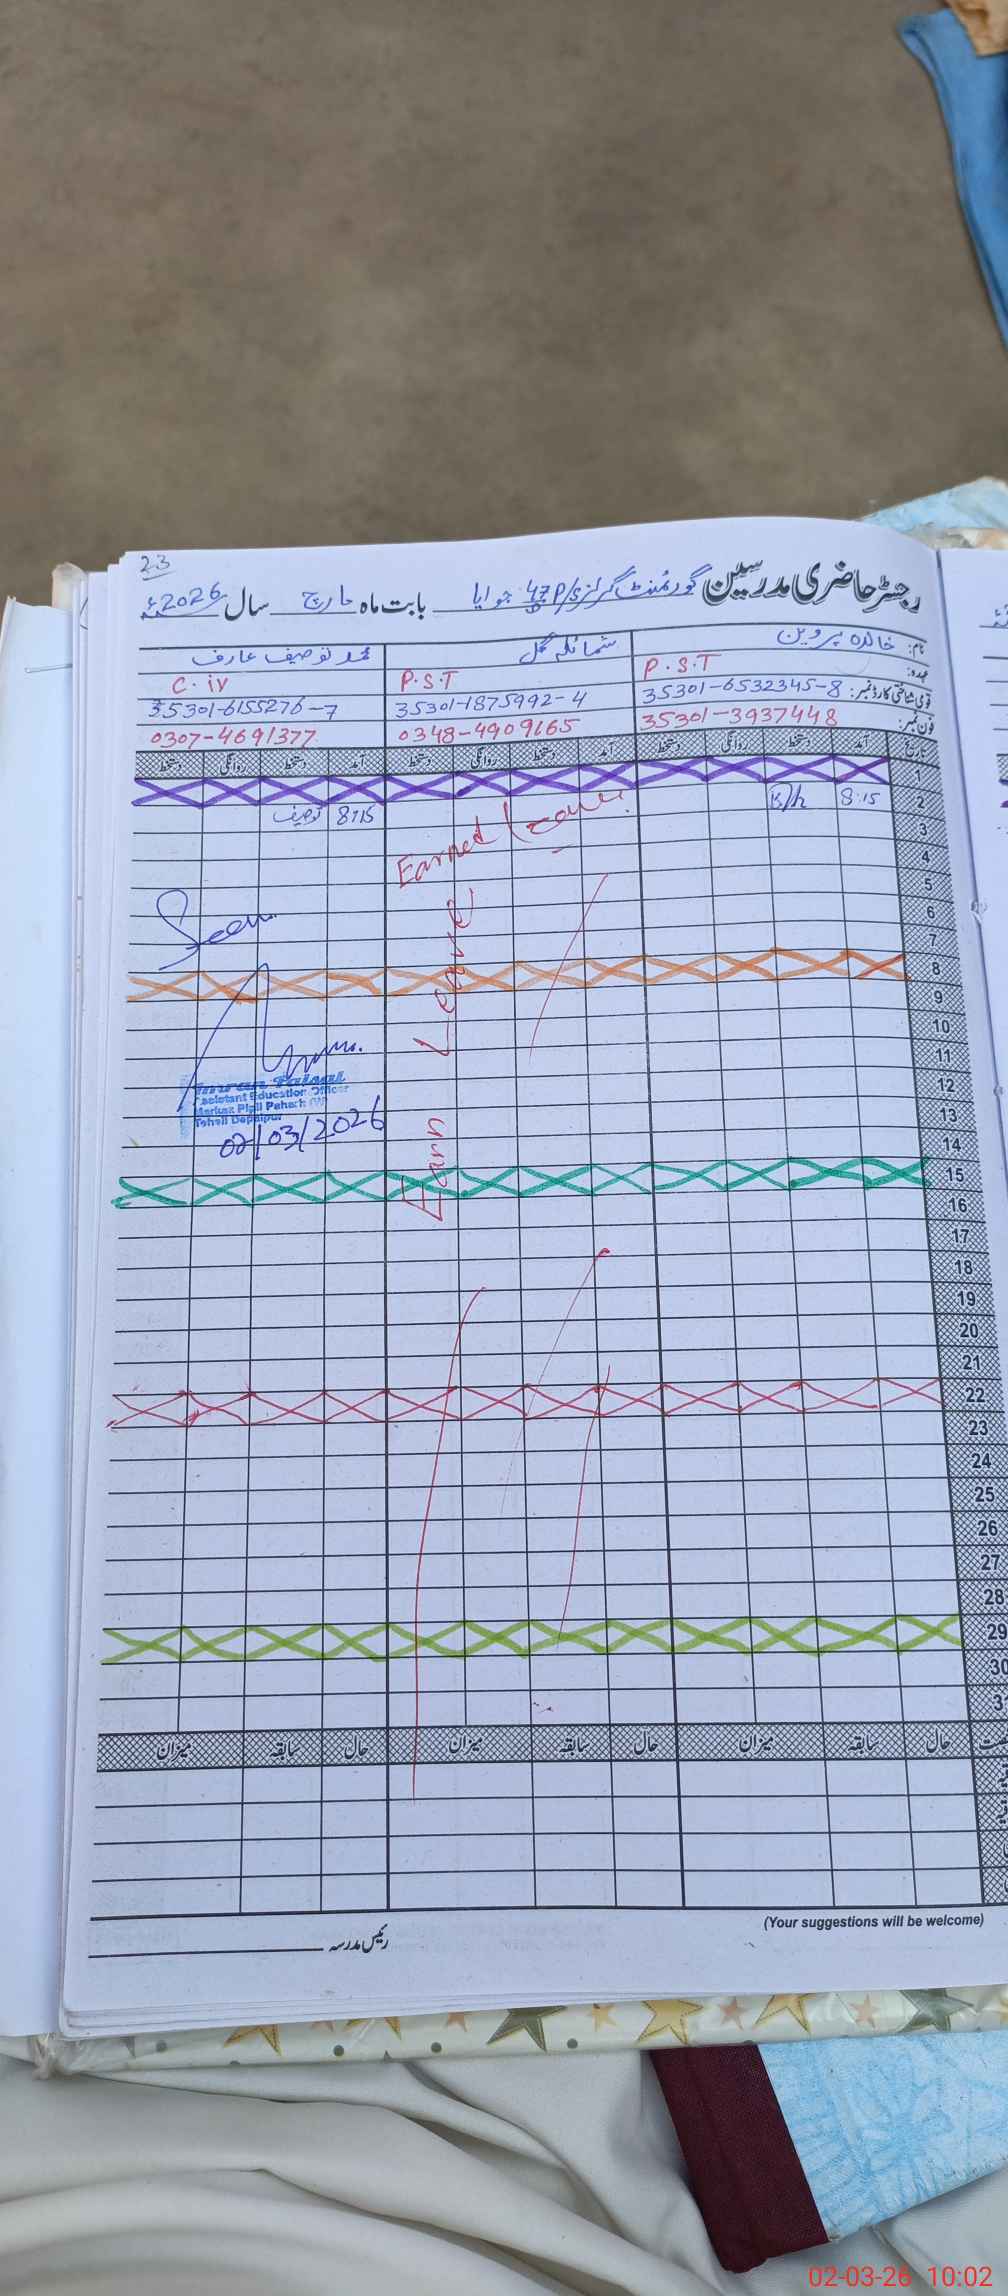 23
رجسٹر حاضری مدرسین گورنمنٹ گرلز P/S 47 جوایا بابت ماہ مارچ سال 2026ء
نام: خالدہ پروین شمائلہ گل محمد توصیف عارف
عہدہ: P.S.T P.S.T C.iv
قومی شناختی کارڈ نمبر: 35301-6532345-8 35301-1875992-4 35301-6155276-7
فون نمبر: 35301-3937448 0348-4909165 0307-4691377
تاریخ آمد دستخط روانگی دستخط آمد دستخط روانگی دستخط آمد دستخط روانگی دستخط
1
2 8:15 8:15 توصیف
3
Earned Leave
4
5
6
Seen
7
8
9
10
11
Earn Leave
12
Assistant Education Officer
Markaz Pipli Pahar (W)
Tehsil Depalpur
02/03/2026
13
14
15
16
17
18
19
20
21
22
23
24
25
26
27
28
29
30
3
حال سابقہ میزان حال سابقہ میزان حال سابقہ میزان
(Your suggestions will be welcome)
رئیس مدرسہ
02-03-26 10:02